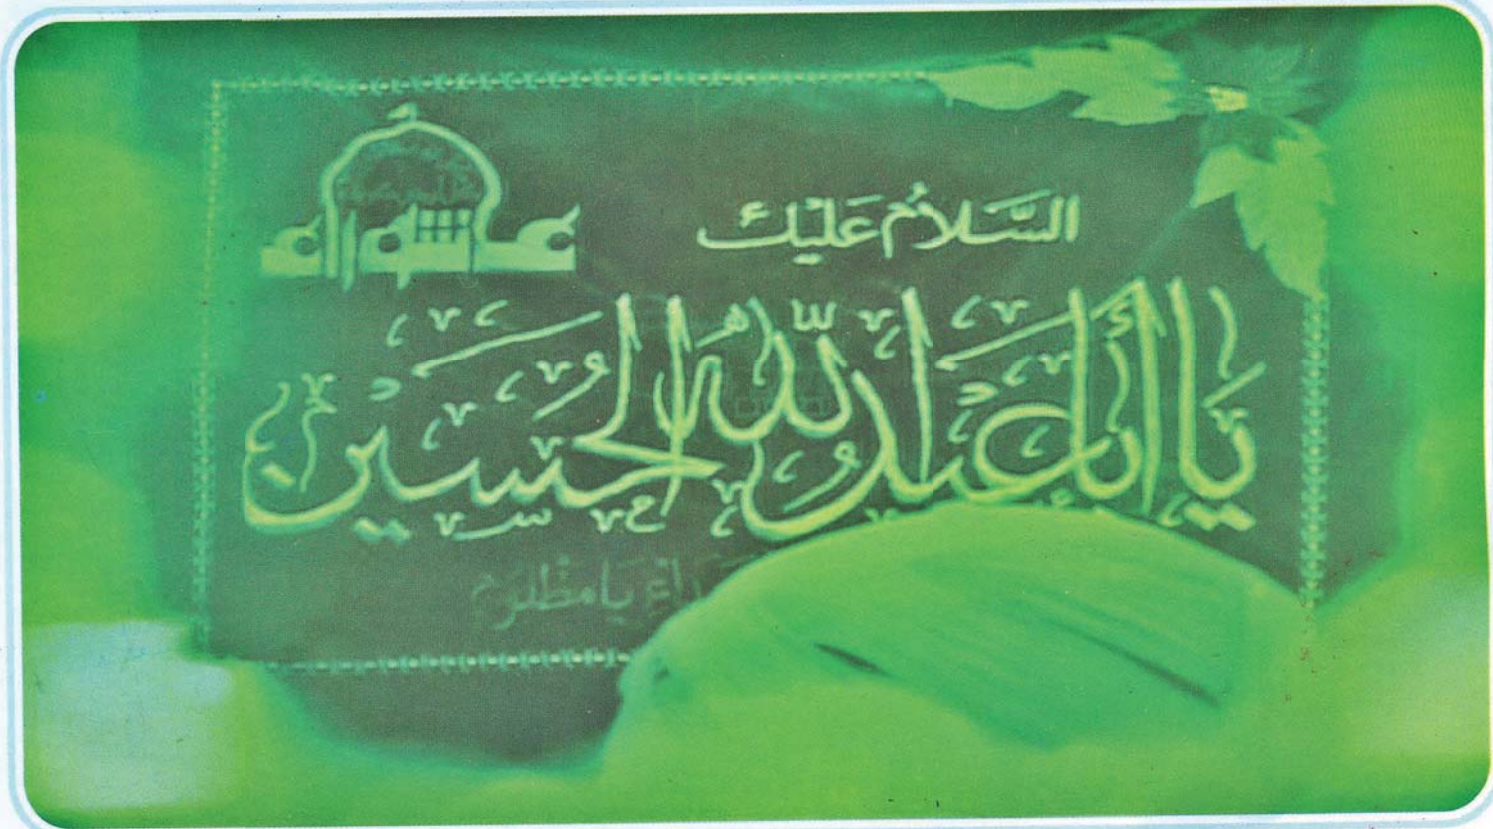 عاشوراء
السَّلَامُ عَلَيْكَ
يَا أَبَا عَبْدِ اللهِ الْحُسَيْنِ
يَا مَظْلُوم